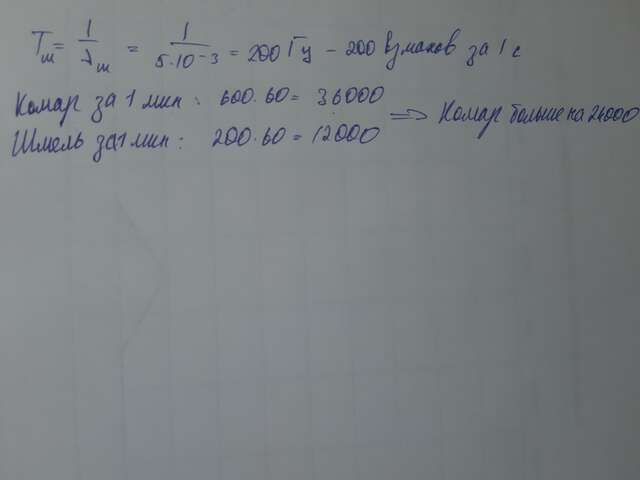 Tш = 1/λш = 1/5·10⁻³ = 200 Гц – 200 взмахов за 1 с
Комар за 1 мин: 600·60 = 36000
Шмель за 1 мин: 200·60 = 12000 => Комар больше на 24000